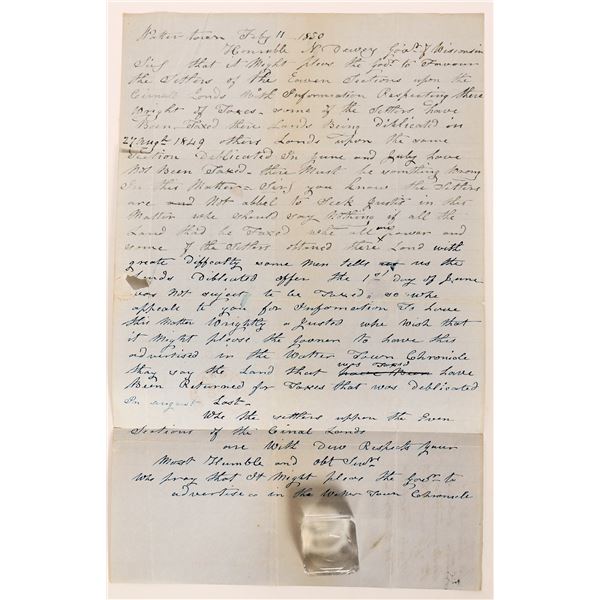 Watter town Feby 11 1850
Honrable N. Dewey Govr of Wisconsin
Sir that it Might pleas the Govr to Favour
the Setters of the Eaven Sections upon the
Cinall Lands With Information Respecting there
wright of Taxes - some of the Setters have
Been Taxed there Lands Being Diblicatd in
27 Augt 1849 others Lands upon the same
Section Deblicated In June and July have
Not Been Taxed - there Must be somthing Wrong
In this Matter - Sir, you know the Setters
are and Not abbel to Seek Justis in this
Matter whe should say Nothing if all the
Land that be Taxed whe all are power and
some of the Setters obtaned there Land with
greate Diffcalty some men tells us the
Lands Diblicated after the 1st Day of June
was Not subject to be Taxed. so whe
appeale to you for Information To have
this Matter Wrightly a Justed whe wish that
it Might pleass the Govener to have this
advertised in the Watter Town Chronicle
thay say the Land that was taxed have Been have
Been Returned for Taxes that was Deblicated
In august Last-
Whe the settlers uppon the Even
Sections of the Cinal Lands
are With Dew Respects your
Most Humble and obt Servts
Who pray that It Might pleass the Govr to
advertise in the Water Town Chronicle